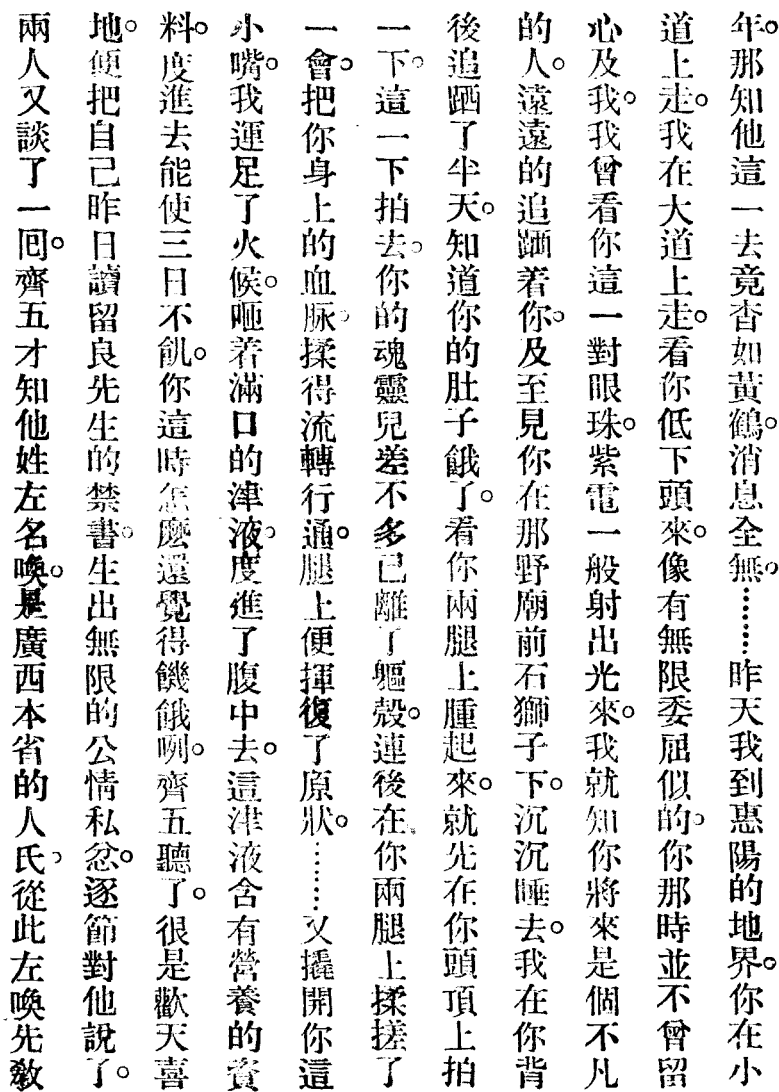 年。那知他這一去竟杳如黃鶴。消息全無。……昨天我到惠陽的地界。你在小
道上走。我在大道上走。看你低下頭來。像有無限委屈似的。你那時並不曾留
心及我。我曾看你這一對眼珠。紫電一般射出光來。我就知你將來是個不凡
的人。遠遠的追躧着你。及至見你在那野廟前石獅子下。沉沉睡去。我在你背
後追躧了半天。知道你的肚子餓了。看你兩腿上腫起來。就先在你頭頂上拍
一下。這一下拍去。你的魂靈兒差不多已離了軀殼。連後在你兩腿上揉搓了
一會。把你身上的血脉。揉得流轉行通。腿上便揮復了原狀。……又撬開你這
小嘴。我運足了火候。咂着滿口的津液。度進了腹中去。這津液含有營養的資
料。度進去能使三日不飢。你這時怎麼還覺得饑餓咧。齊五聽了。很是歡天喜
地。便把自己昨日讀留良先生的禁書。生出無限的公情私忿。逐節對他說了。
兩人又談了一囘。齊五才知他姓左名喚。是廣西本省的人氏。從此左喚先敎